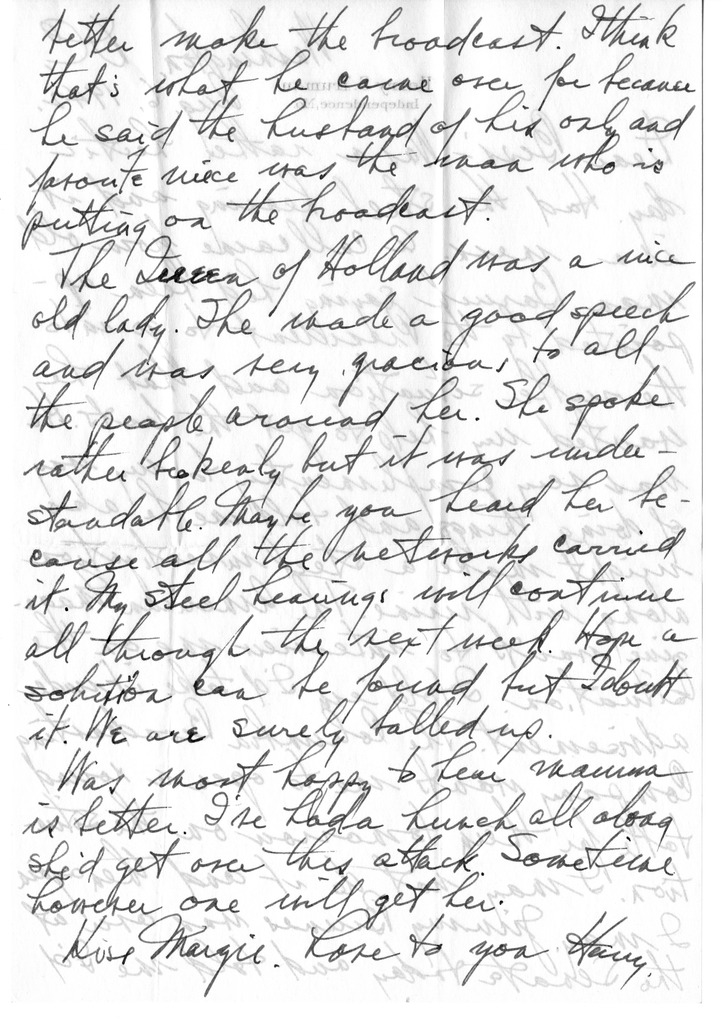 better make the broadcast. I think
that's what he came over for because
he said the husband of his only and
favorite niece was the man who is
putting on the broadcast.
The Queen of Holland was a nice
old lady. She made a good speech
and was very gracious to all
the people around her. She spoke
rather brokenly but it was under-
standable. Maybe you heard her be-
cause all the networks carried
it. My steel hearings will continue
all through the next week. Hope a
solution can be found but I doubt
it. We are surely balled up.
Was most happy to hear mamma
is better. I've had a hunch all along
she'd get over this attack. Sometime
however one will get her.
Kiss Margie. Love to you Harry.